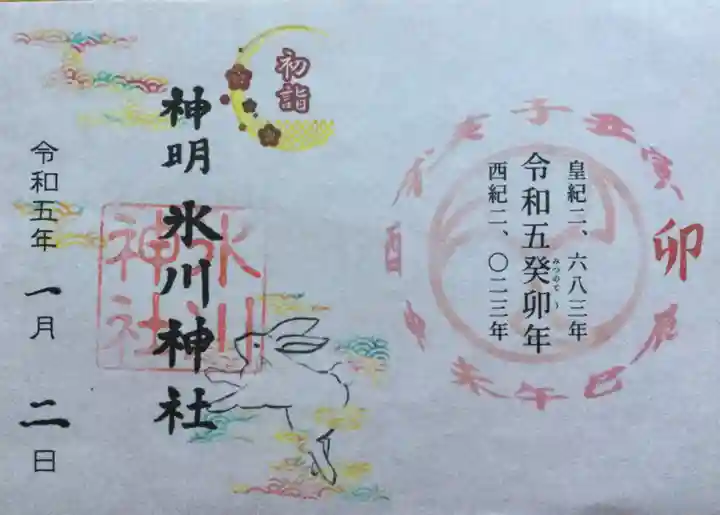 皇紀二、六八三年
令和五癸卯年
みつのて〜
西紀二、〇二三年
子
丑
寅
卯
辰
巳
午
未
申
酉
戌
亥
初詣
神明氷川神社
氷川
神社
令和五年一月二日